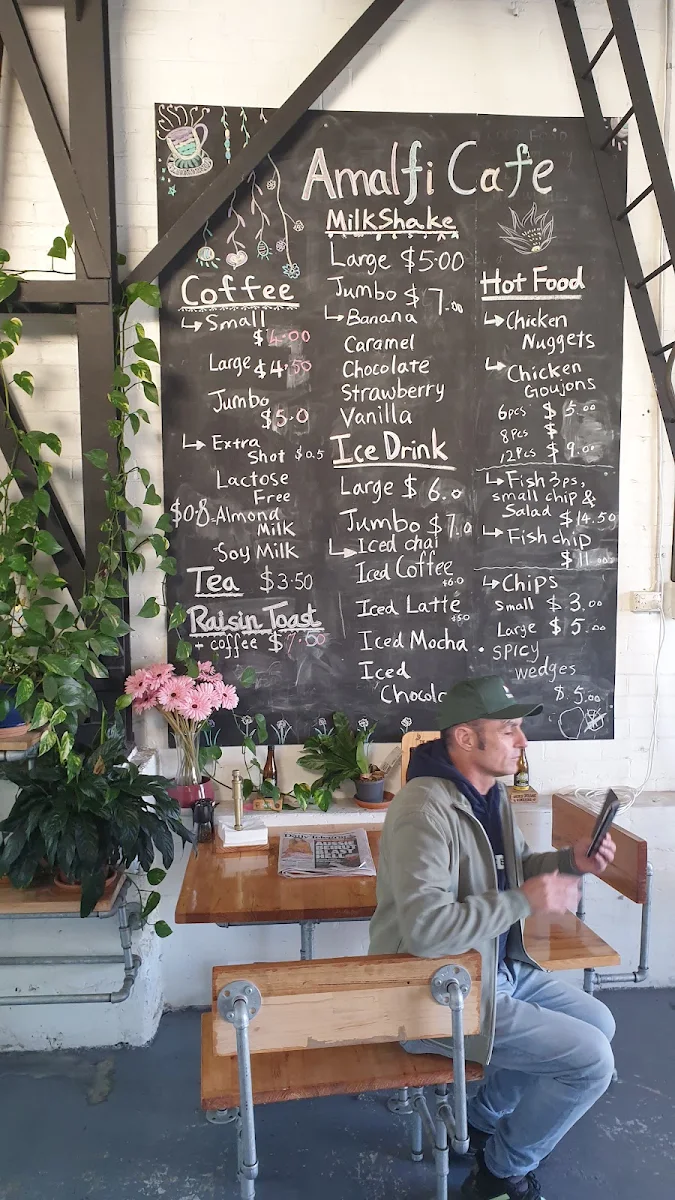 Amalfi Cafe
Coffee
Small
$4.00
Large $4.50
Jumbo
$5.0
Extra
Shot $0.5
Lactose
Free
$0.8 Almond
Milk
Soy Milk
Tea $3.50
Raisin Toast
+ coffee $7.50
MilkShake
Large $5.00
Jumbo $7.00
Banana
Caramel
Chocolate
Strawberry
Vanilla
Ice Drink
Large $6.0
Jumbo $7.0
Iced chai
Iced Coffee
$6.0
Iced Latte
Iced Mocha
Iced
Hot Food
Chicken
Nuggets
Chicken
Goujons
6pcs $5.00
8pcs $
12Pcs $9.00
Fish 3ps,
small chip &
Salad $14.50
Fish chip
$11.00
Chips
Small $3.00
Large $5.00
• SPICY
wedges
$5.00
Daily Telegraph
AUSSIE
BEIRUT
BLAST
HELL